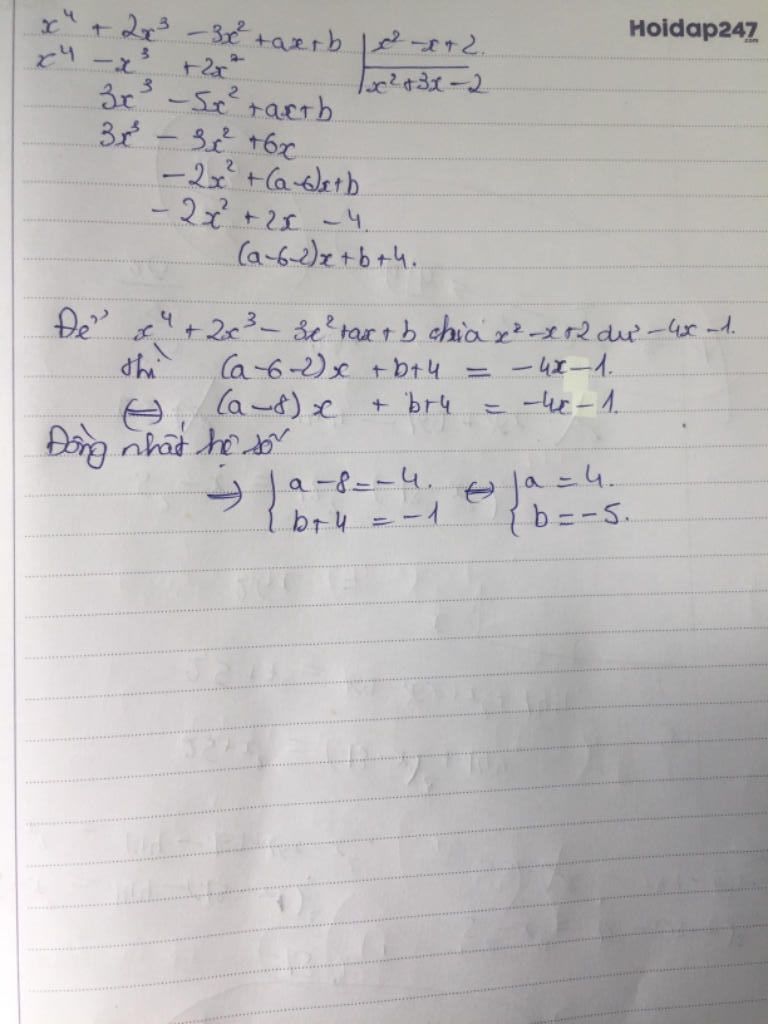 Hoidap247.com
x⁴ + 2x³ - 3x² + ax + b | x² - x + 2
x⁴ - x³ + 2x² | x² + 3x - 2
3x³ - 5x² + ax + b
3x³ - 3x² + 6x
- 2x² + (a-6)x + b
- 2x² + 2x - 4.
(a-6-2)x + b + 4.
Để x⁴ + 2x³ - 3x² + ax + b chia x² - x + 2 dư -4x - 1.
thì (a-6-2)x + b+4 = -4x - 1.
⇔ (a-8)x + b+4 = -4x - 1.
Đồng nhất hệ số
⇒ { a - 8 = -4. ⇔ { a = 4.
b + 4 = -1 b = -5.